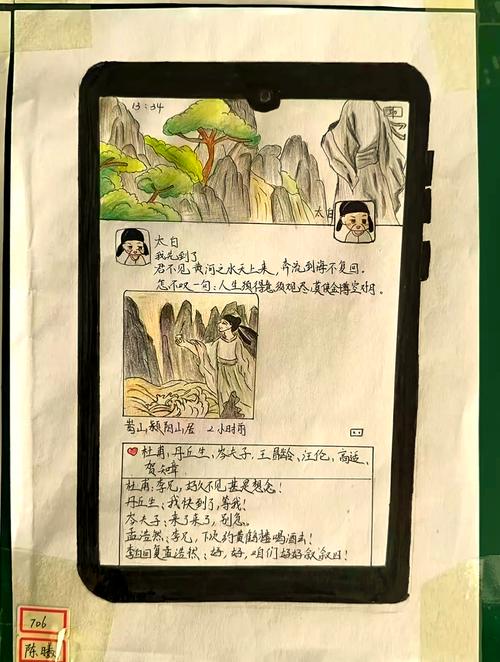 13:34
太白
太白
我先到了
君不见黄河之水天上来，奔流到海不复回。
怎不叹一句：人生须得意须观尽，莫使金樽空对月。
嵩山颍阳山居 2小时前
杜甫，丹丘生、岑夫子，王昌龄、汪伦，高适、
贺知章
杜甫：李兄，好久不见甚是想念！
丹丘生：我快到了，等我！
岑夫子：来了来了，别急。
孟浩然：李兄，下次约黄鹤楼喝酒去！
李白回复孟浩然：好，好，咱们好好叙叙旧！
706
陈曦